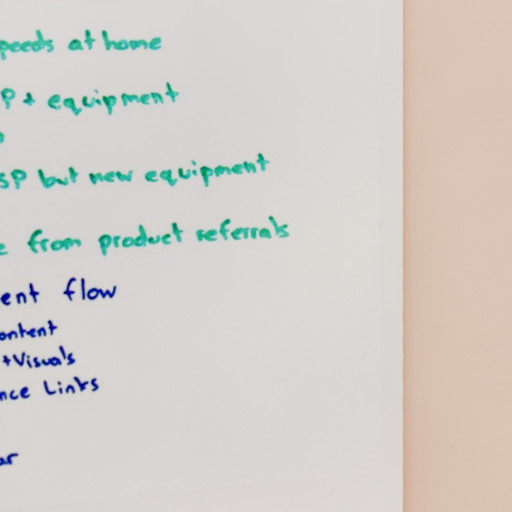 peeds at home
P + equipment
SP but new equipment
e from product referrals
ent flow
ontent
+Visuals
nce Links
ar